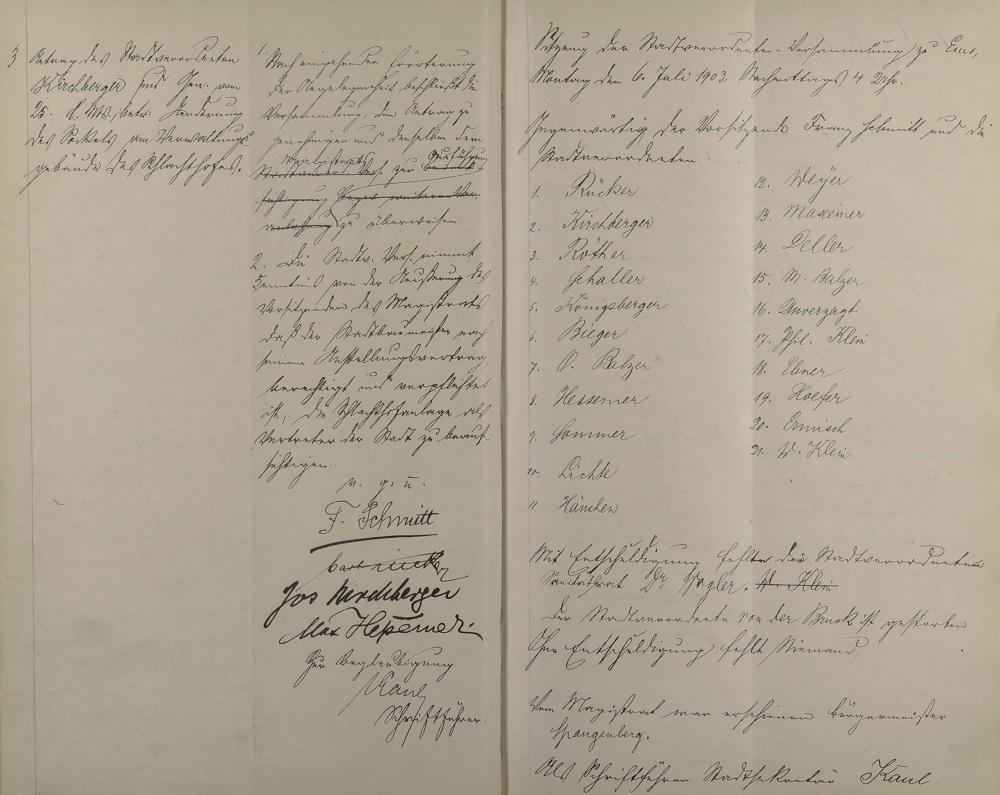 3 Antrag des Stadtverordneten
Kirchberger und Gen. vom
25. d. Mts., betr. Aenderung
des Sockels am Verwaltungs-
gebäude des Schlachthofes.
1. Nach eingehender Erörterung
der Angelegenheit beschließt die
Versammlung, den Antrag zu
genehmigen und denselben dem
Magistrat Ausführung
Vers. zur
zu überweisen.
2. Die Stadtv. Vers. nimmt
Kenntnis von der Aeußerung des
Vorsitzenden des Magistrats
daß der Stadtbaumeister nach
seinem Anstellungsvertrag
berechtigt und verpflichtet
ist, die Schlachthofanlage als
Vertreter der Stadt zu beauf-
sichtigen.
v. g. u.
F. Schmitt
Jos Kirchberger
Max Hessemer
Zur Beglaubigung
Kaul
Schriftführer.
Sitzung der Stadtverordneten-Versammlung zu Ems,
Montag den 6. Juli 1903. Nachmittags 4 Uhr.
Gegenwärtig, der Vorsitzende Franz Schmitt und die
Stadtverordneten
1. Rücker
2. Kirchberger
3. Röther
4. Schaller
5. Königsberger
6. Bieger
7. O. Balzer
8. Hessemer
9. Sommer
10. Lichte
11 Hänchen
12. Weyer
13. Maxeiner
14. Deller
15. M. Balzer
16. Unverzagt
17. Phil. Klein
18. Ebner
19. Hoefer
20. Ermisch
21. W. Klein
Mit Entschuldigung fehlte der Stadtverordneten
Sanitätsrat Dr. Vogler. W. Klein
Der Stadtverordnete von der Bruck ist gestorben
Ohne Entschuldigung fehlt Niemand.
Vom Magistrat war erschienen Bürgermeister
Spangenberg.
Als Schriftführer Stadtsekretär Kaul.